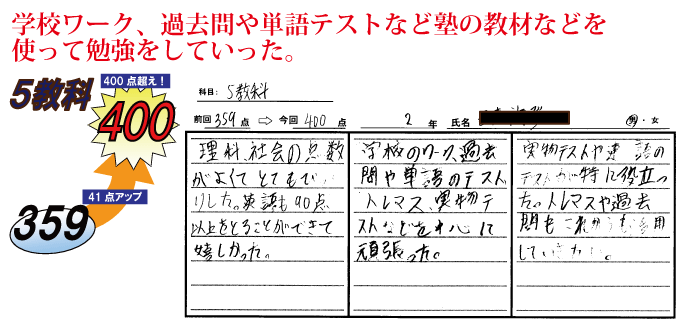 学校ワーク、過去問や単語テストなど塾の教材などを
使って勉強をしていった。
5教科
400点超え！
400
41点アップ
359
科目: 5教科
前回 359 点 ⇨ 今回 400 点 2 年 氏名 男・女
理科、社会の点数
がよくて とても
りした。英語も90点
以上をとることができて
嬉しかった。
学校のワーク、過去
問や単語のテスト
トレマス、実物テ
ストなどを中心に
頑張った。
実物テストや 語の
テストが特に役立っ
た。トレマスや過去
問もこれからも 用
していきたい。